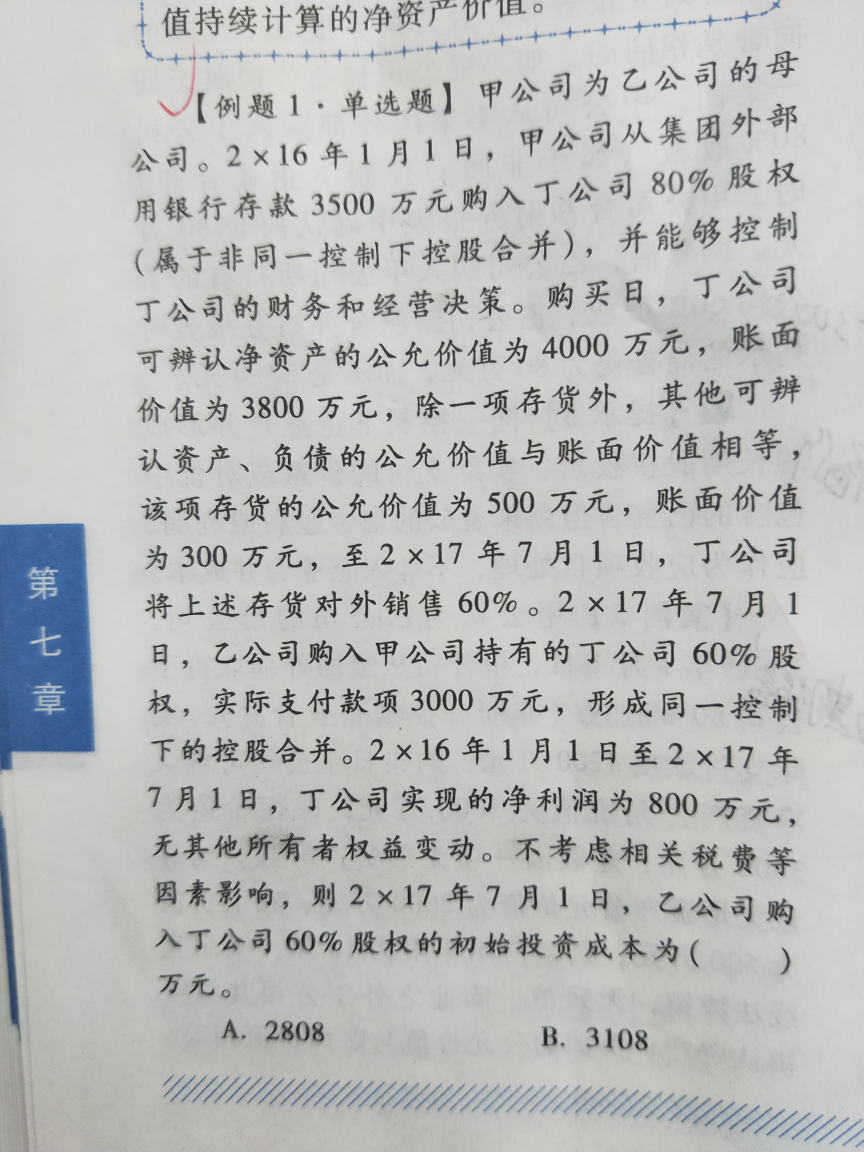 值持续计算的净资产价值。
【例题 1·单选题】甲公司为乙公司的母
公司。2×16 年 1 月 1 日，甲公司从集团外部
用银行存款 3500 万元购入丁公司 80% 股权
(属于非同一控制下控股合并)，并能够控制
丁公司的财务和经营决策。购买日，丁公司
可辨认净资产的公允价值为 4000 万元，账面
价值为 3800 万元，除一项存货外，其他可辨
认资产、负债的公允价值与账面价值相等，
该项存货的公允价值为 500 万元，账面价值
为 300 万元，至 2×17 年 7 月 1 日，丁公司
将上述存货对外销售 60%。2×17 年 7 月 1
日，乙公司购入甲公司持有的丁公司 60% 股
权，实际支付款项 3000 万元，形成同一控制
下的控股合并。2×16 年 1 月 1 日至 2×17 年
7 月 1 日，丁公司实现的净利润为 800 万元，
无其他所有者权益变动。不考虑相关税费等
因素影响，则 2×17 年 7 月 1 日，乙公司购
入丁公司 60% 股权的初始投资成本为(　　)
万元。
A. 2808　　B. 3108
第
七
章